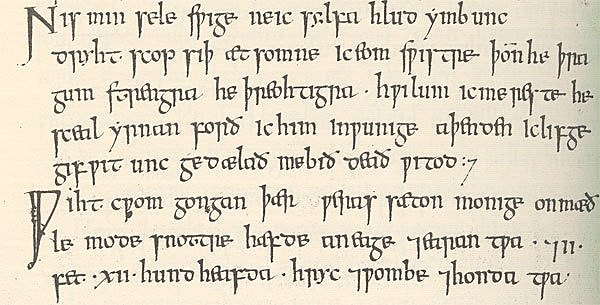 Nis min sele ſƿige ne ic sylfa hlud ymb unc
dryht · scop siþ æt somne ic eom sƿiftre þon̄ he þra
gum strengra he þreohtigra · hƿilum ic me reste he
sceal yrnan forð ic him in ƿunige aþenden ic lifge
gif ƿit unc gedælað me bið deað ƿitod :⁊
Ƿiht cƿom gongan þær ƿeras sæton monige on mæð
le mode snottre hæfde an eage ⁊ earan tƿa · ⁊ · II ·
fet · XII · hund heafda · hryc ⁊ ƿombe ⁊ honda tƿa